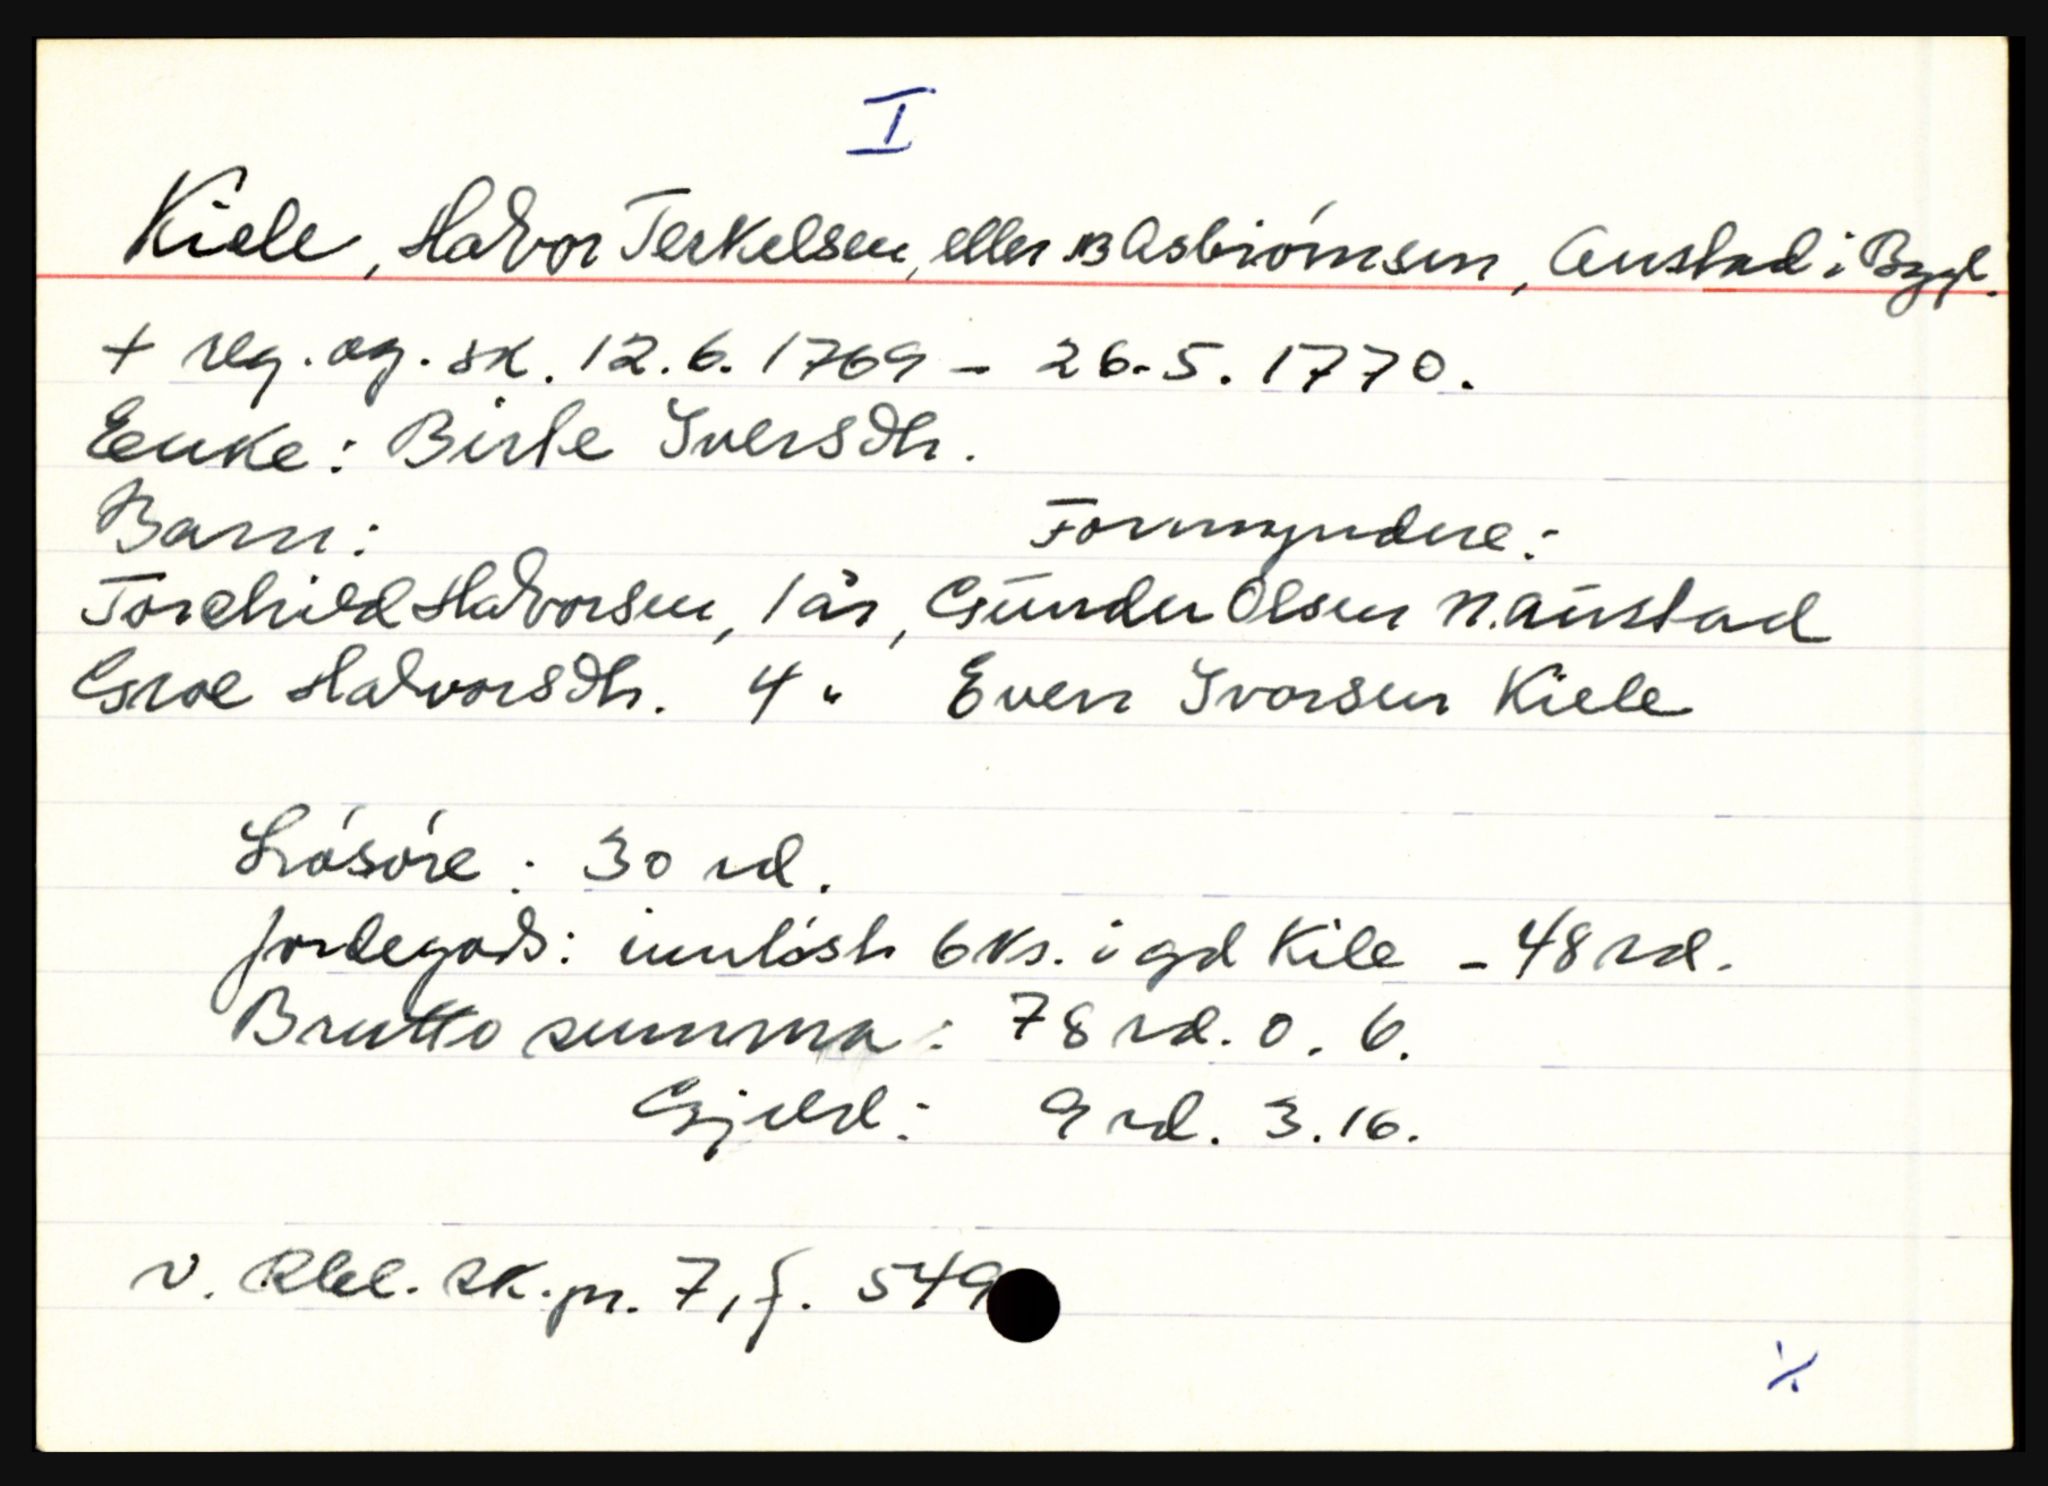 I
Kiele, Halvor Terkelsen, eller Asbiørnsen, Austad i Bygl.
+ reg. og. sk. 12.6.1769 - 26.5.1770.
Enke: Birte Iversdtr.
Barn: Formyndere:
Torchild Halvorsen, 1 år, Gunder Olsen N. Austad
Groe Halvorsdtr. 4 " Even Ivorsen Kiele
Løsøre: 30 rd.
Jordegods: innløst 6 ks. i gd Kile - 48 rd.
Brutto summa: 78 rd. 0. 6.
Gjeld: 9 rd. 3.16.
v. Rbl. sk.pr. 7, f. 549